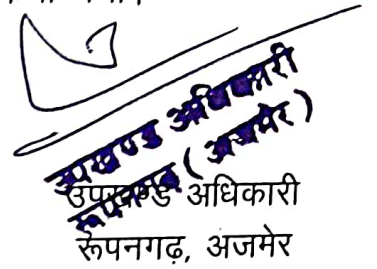 उपखण्ड अधिकारी
रूपनगढ़ (अजमेर)
उपखण्ड अधिकारी
रूपनगढ़, अजमेर